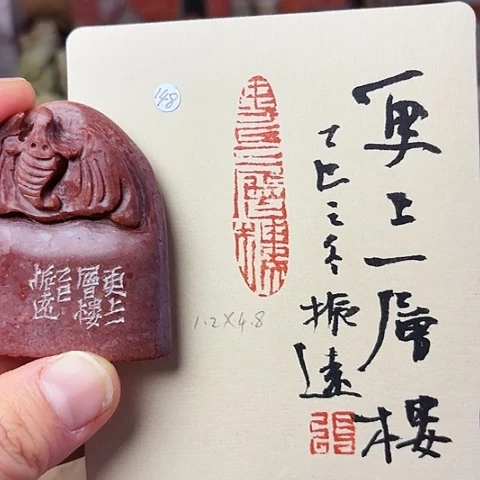 更上一層樓
乙巳之冬振遠
更上一層樓
1.2X4.8
148
更上一
層樓
乙巳
振遠